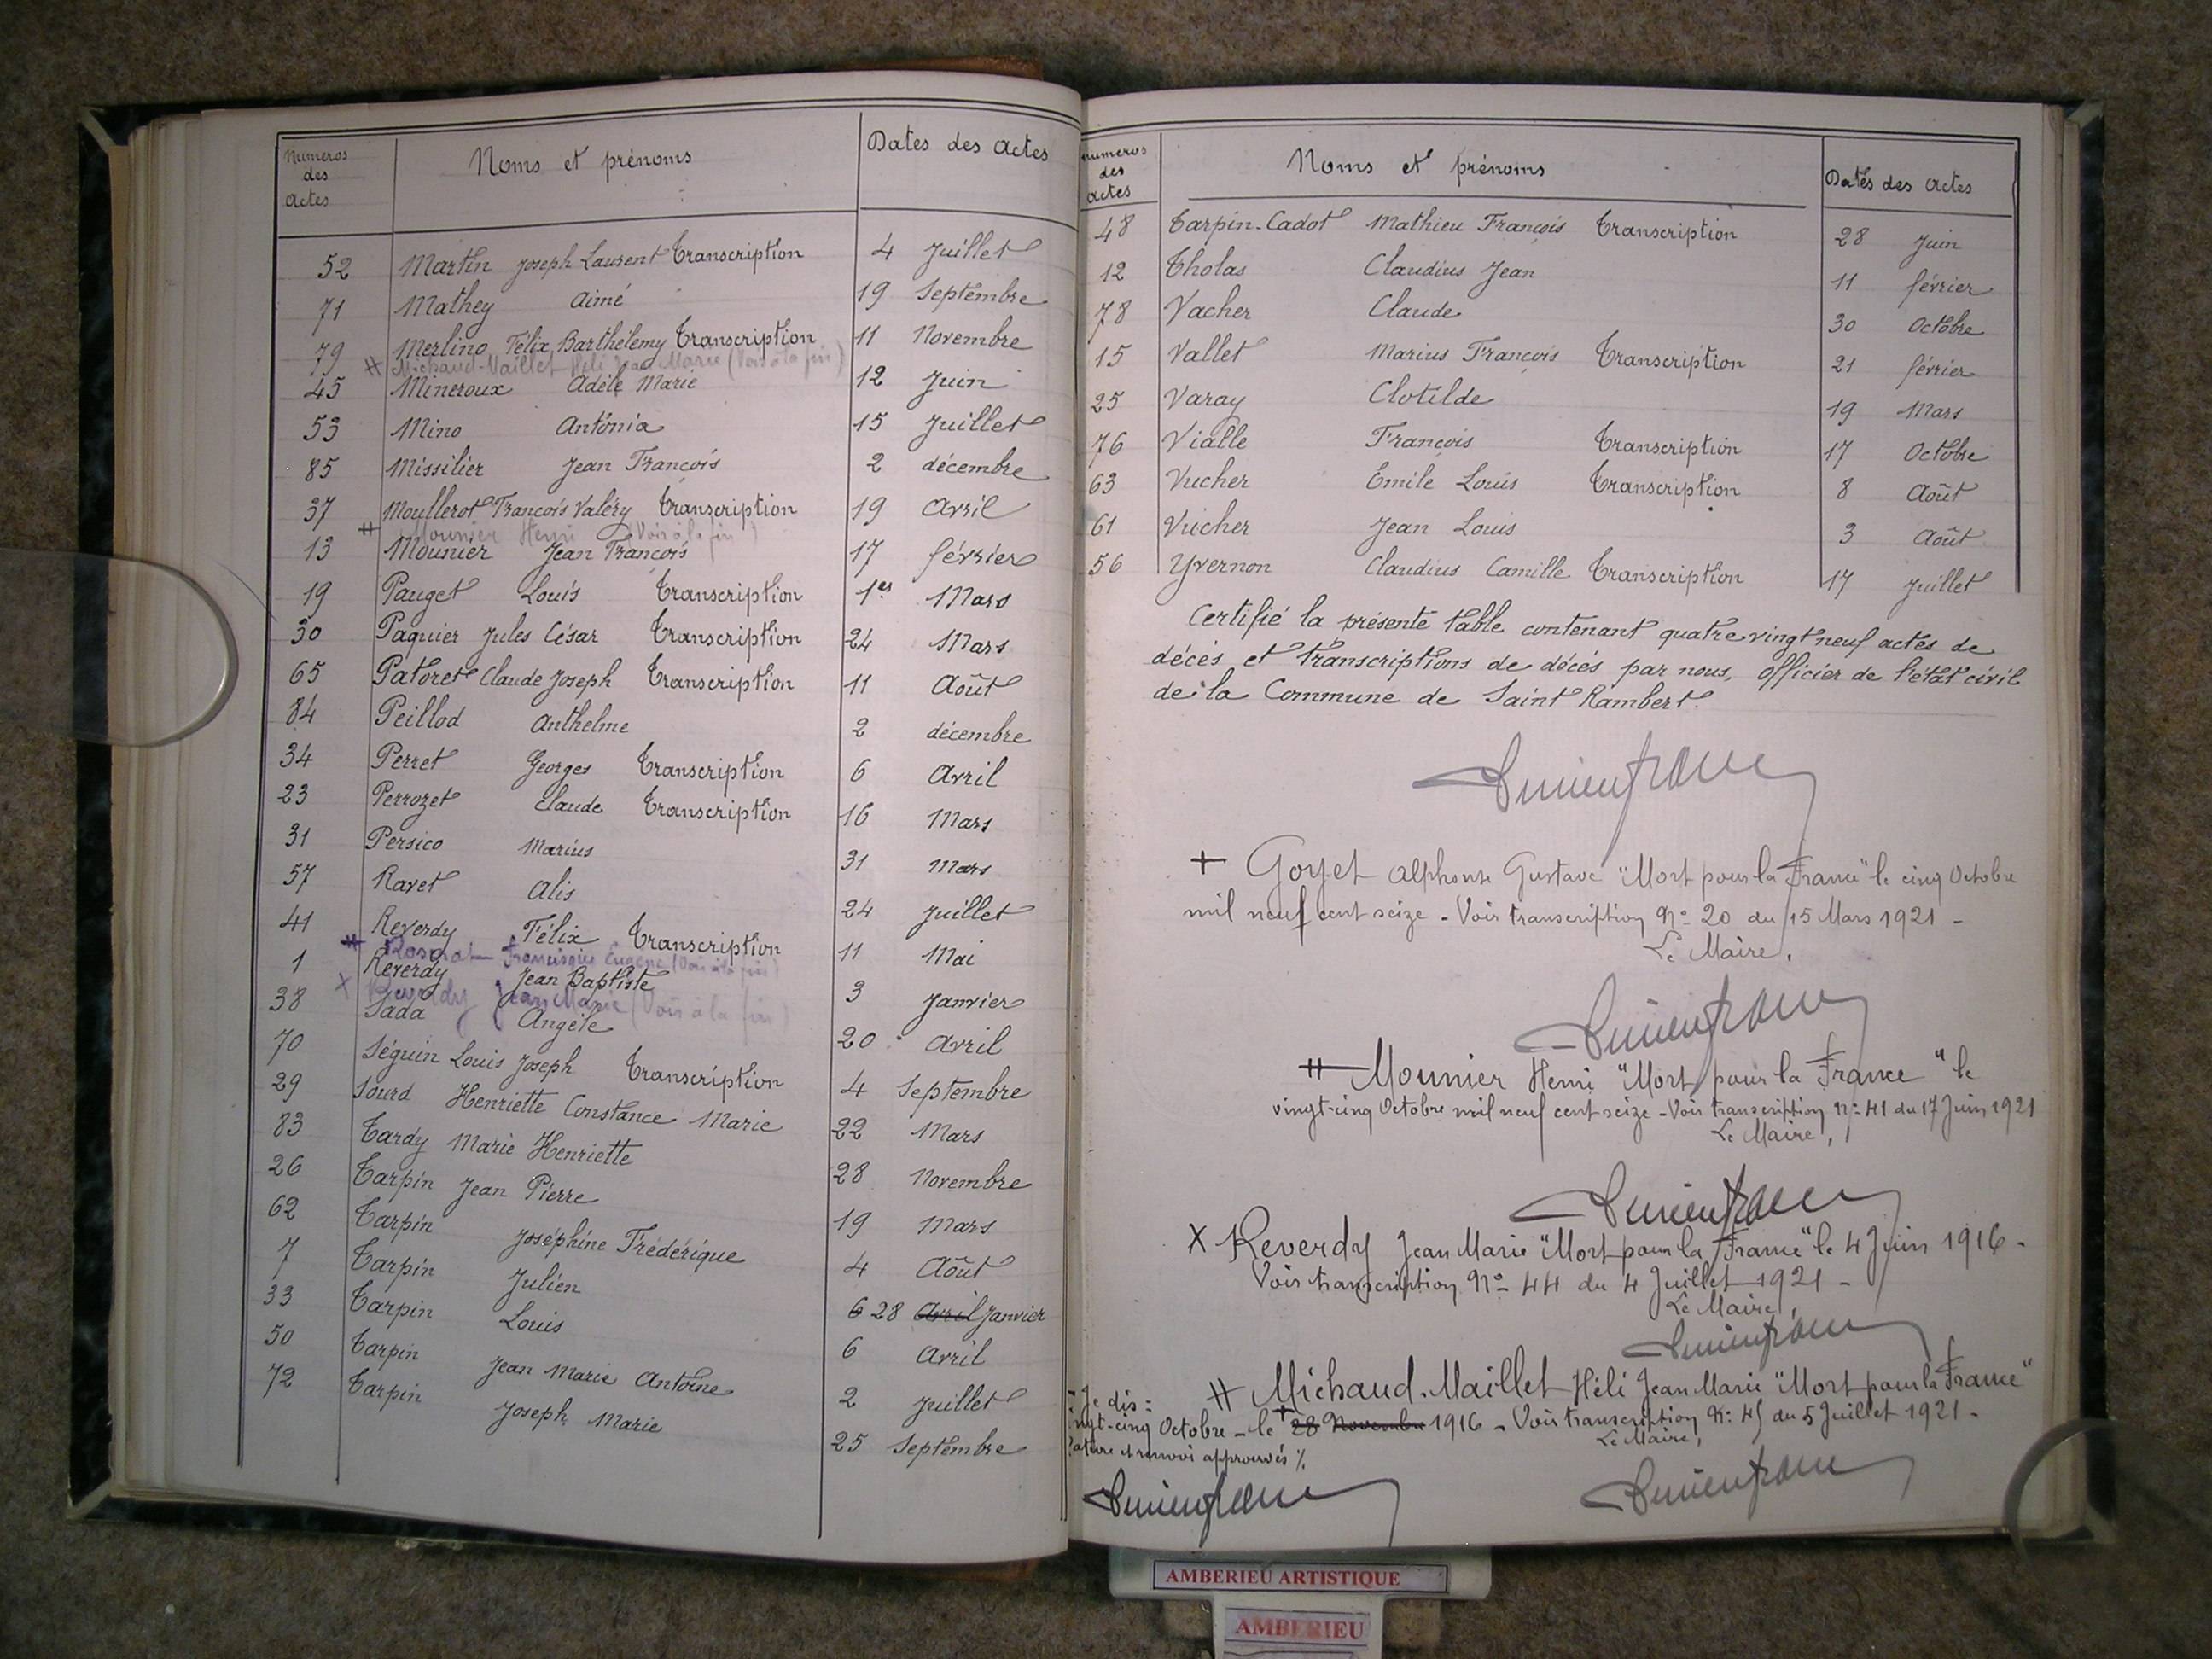 Numeros des actes Noms et prénoms Dates des actes
52 Martin Joseph Laurent Transcription 4 Juillet
71 Mathey Aimé 19 Septembre
79 Merlino Félix Barthélemy Transcription 11 Novembre
# Michaud-Maillet Héli Jean Marie (Voir à la fin)
45 Mineroux Adèle Marie 12 Juin
53 Mino Antonia 15 Juillet
85 Missilier Jean François 2 décembre
37 Moullerot François Valéry Transcription 19 Avril
# Mounier Henri (Voir à la fin)
13 Mounier Jean François 17 février
19 Pauget Louis Transcription 1er Mars
30 Paquier Jules César Transcription 24 Mars
65 Patoret Claude Joseph Transcription 11 Août
84 Peillod Anthelme 2 décembre
34 Perret Georges Transcription 6 Avril
23 Perrozet Claude Transcription 16 Mars
31 Persico Marius 31 Mars
57 Ravet Alis 24 Juillet
41 Reverdy Félix Transcription 11 Mai
# Francisque Eugène (Voir à la fin)
1 Reverdy Jean Baptiste 3 Janvier
X Reverdy Jean Marie (Voir à la fin)
38 Sada Angèle 20 Avril
70 Séguin Louis Joseph Transcription 4 Septembre
29 Sourd Henriette Constance Marie 22 Mars
83 Tardy Marie Henriette 28 Novembre
26 Tarpin Jean Pierre 19 Mars
62 Tarpin Joséphine Frédérique 4 Août
7 Tarpin Julien 6 28 Avril Janvier
33 Tarpin Louis 6 Avril
50 Tarpin Jean Marie Antoine 2 Juillet
72 Tarpin Joseph Marie 25 Septembre
numeros des actes Noms et prénoms Dates des actes
48 Tarpin-Cadot Mathieu François Transcription 28 Juin
12 Tholas Claudius Jean 11 février
78 Vacher Claude 30 Octobre
15 Vallet Marius François Transcription 21 février
25 Varay Clotilde 19 Mars
76 Vialle François Transcription 17 Octobre
63 Vucher Emile Louis Transcription 8 Août
61 Vucher Jean Louis 3 Août
56 Yvernon Claudius Camille Transcription 17 Juillet
Certifié la présente table contenant quatre vingt neuf actes de
décès et transcriptions de décès par nous, Officier de l'état civil
de la Commune de Saint Rambert.
+ Goyet Alphonse Gustave "Mort pour la France" le cinq Octobre
mil neuf cent seize - Voir transcription No 20 du 15 Mars 1921 -
Le Maire,
# Mounier Henri "Mort pour la France" le
vingt-cinq Octobre mil neuf cent seize - Voir transcription No 41 du 17 Juin 1921
Le Maire,
X Reverdy Jean Marie "Mort pour la France" le 4 Juin 1916 -
Voir transcription No 44 du 4 Juillet 1921 -
Le Maire,
# Michaud-Maillet Héli Jean Marie "Mort pour la France"
- Je dis :
ingt-cinq Octobre - le + 28 Novembre 1916 - Voir transcription No 45 du 5 Juillet 1921 -
Le Maire,
rature et renvoi approuvés %
AMBERIEU ARTISTIQUE
AMBERIEU